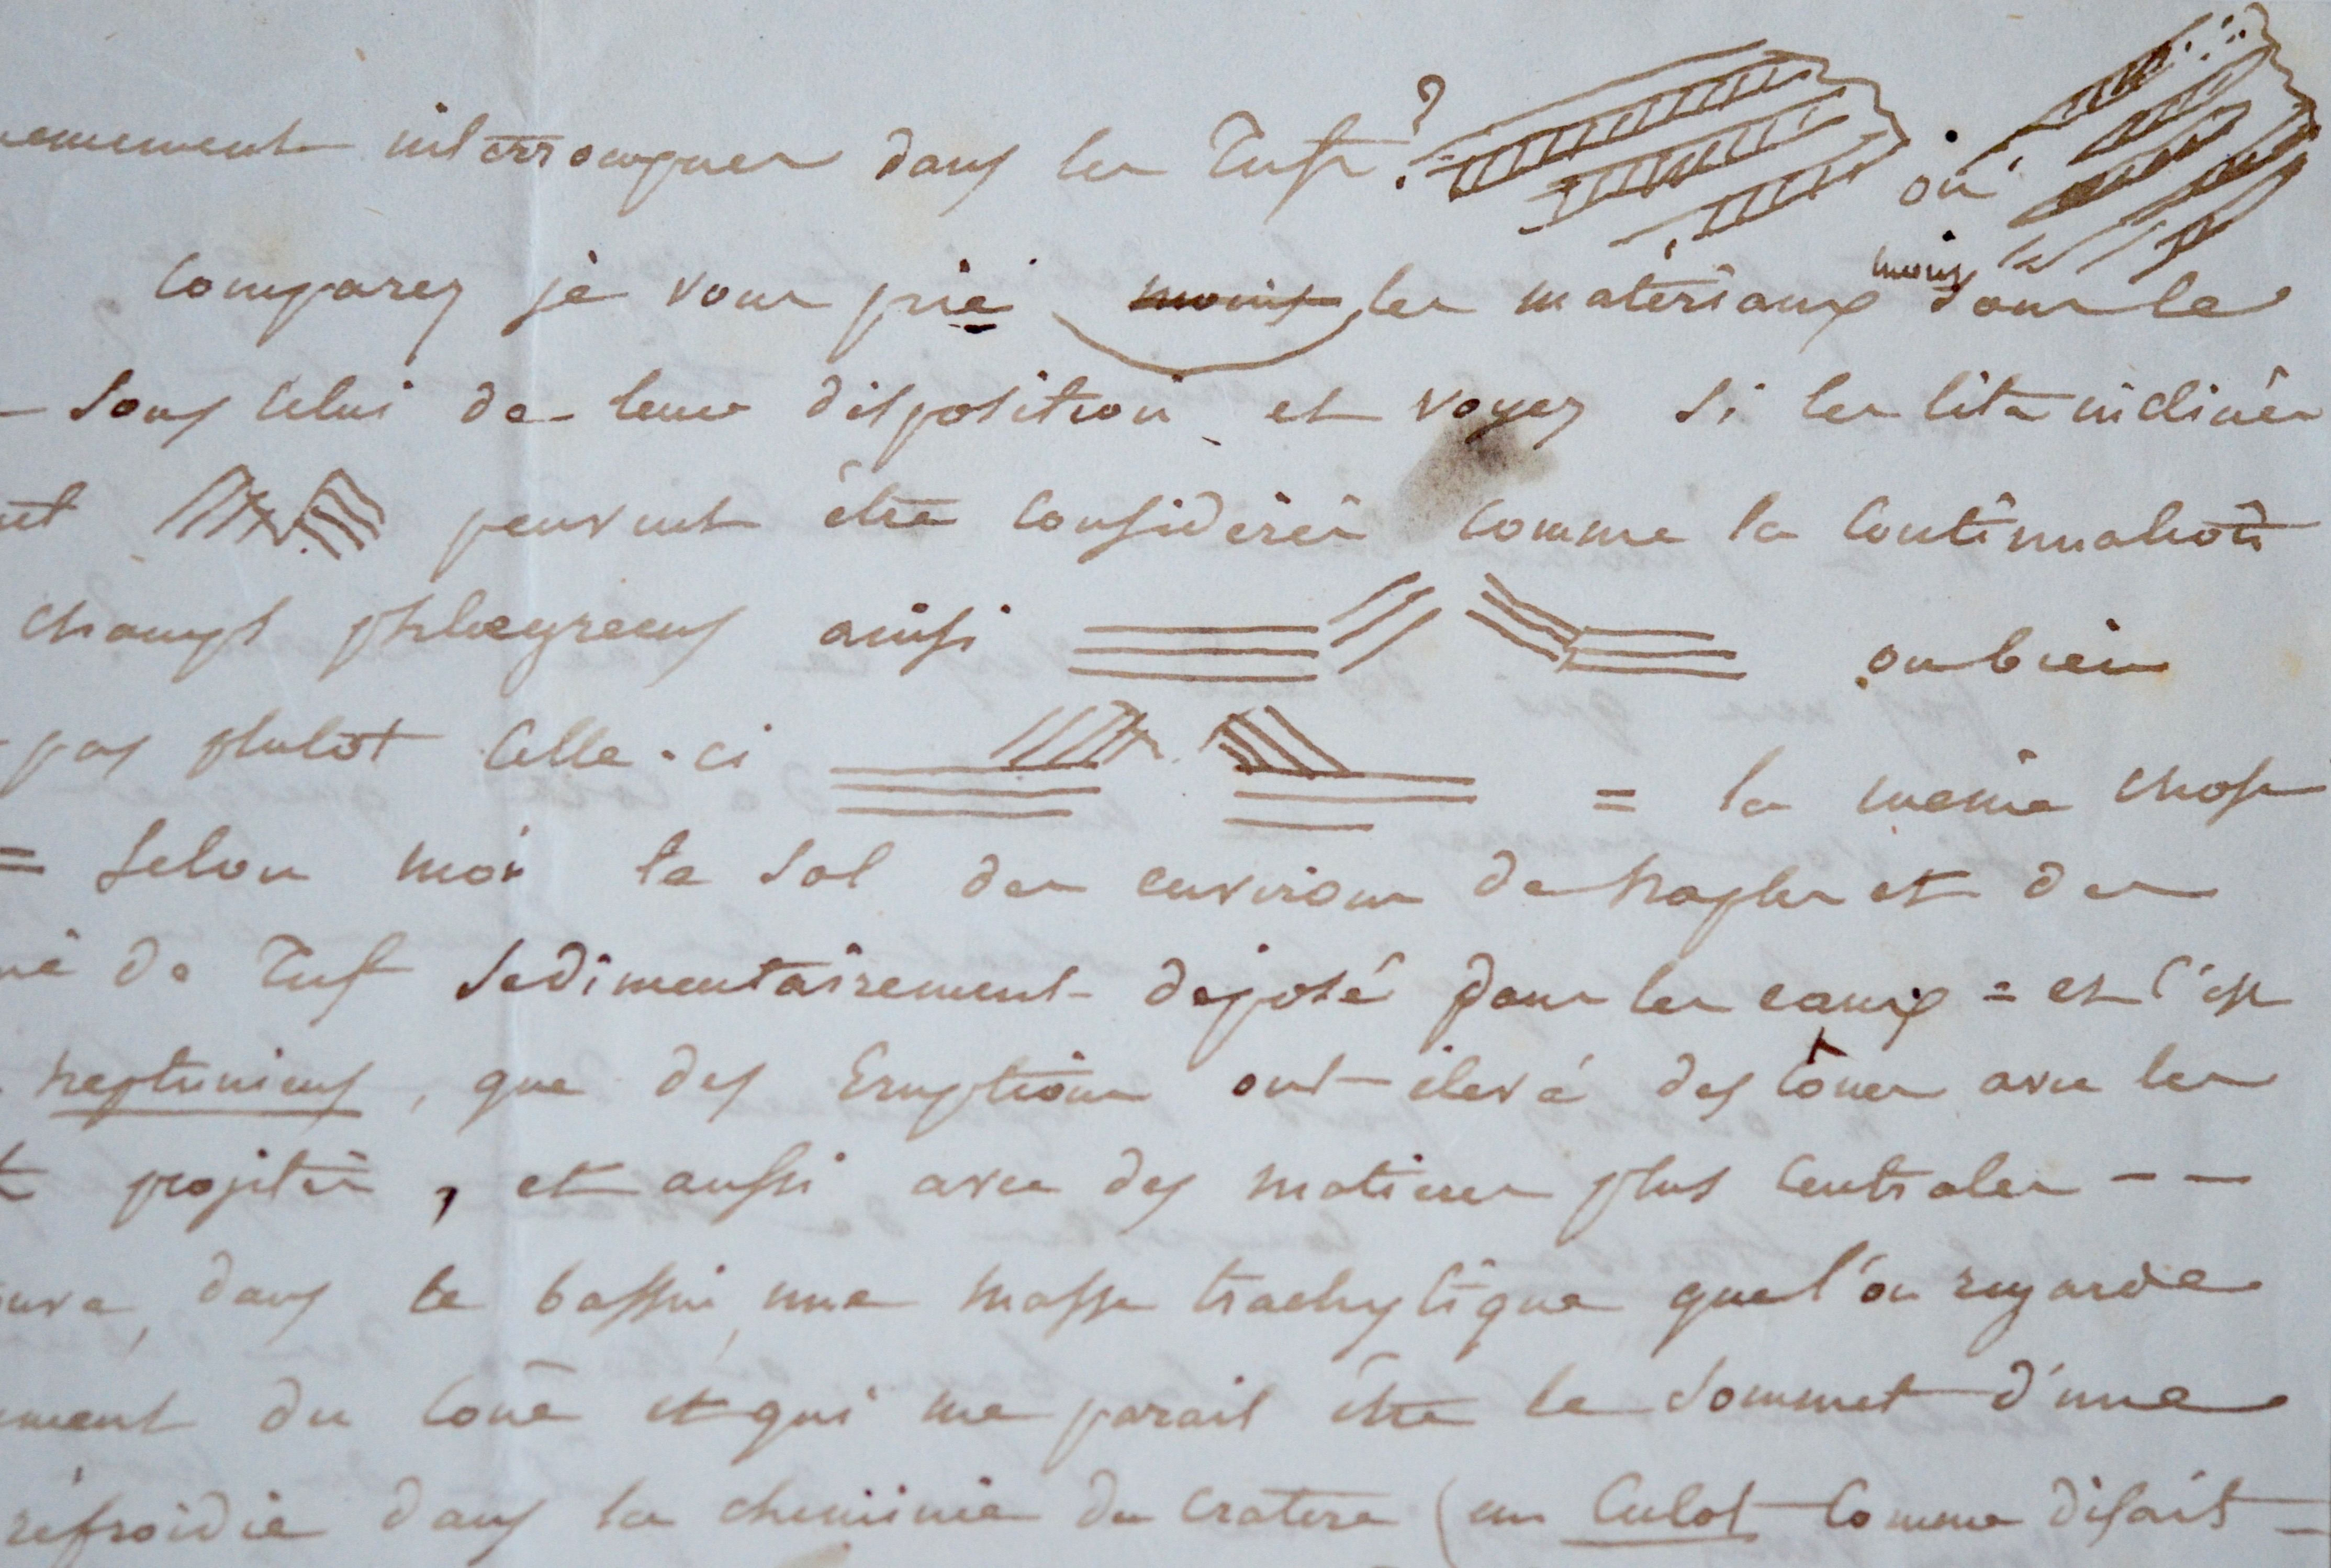 interrompues dans les Tufs? ou
moins
Comparez je vous prie moins les materiaux sous le
sous celui de leur disposition et voyez si les lits inclinés
peuvent être considérés comme la continuation
champs phlegreens ainsi ou bien
pas plutot celle-ci = la même chose
= Selon moi le sol des environs de Naples et des
de Tuf sedimentairement deposé dans les eaux = et c'est
neptuniens, que des Eruptions ont élevé des cones avec les
projetés, et aussi avec des matieres plus centrales --
dans le bassin, une masse trachytique que l'on regarde
du cone et qui me parait être le sommet d'une
refroidie dans la cheminée du cratere (un Culot comme disait